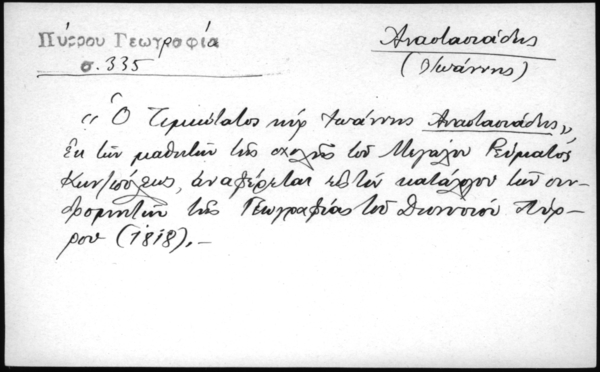 Πύρρου Γεωγραφία
σ. 335
Αναστασιάδης
(Ιωάννης)
"Ὁ Τιμιώτατος κὺρ Ἰωάννης Αναστασιάδης",
ἐκ τῶν μαθητῶν τῆς σχολῆς τοῦ Μεγάλου Ρεύματος
Κων/πόλεως, ἀναφέρεται εἰς τὸν κατάλογον τῶν συν-
δρομητῶν τῆς Γεωγραφίας τοῦ Διονυσίου Πύρ-
ρου (1818).-